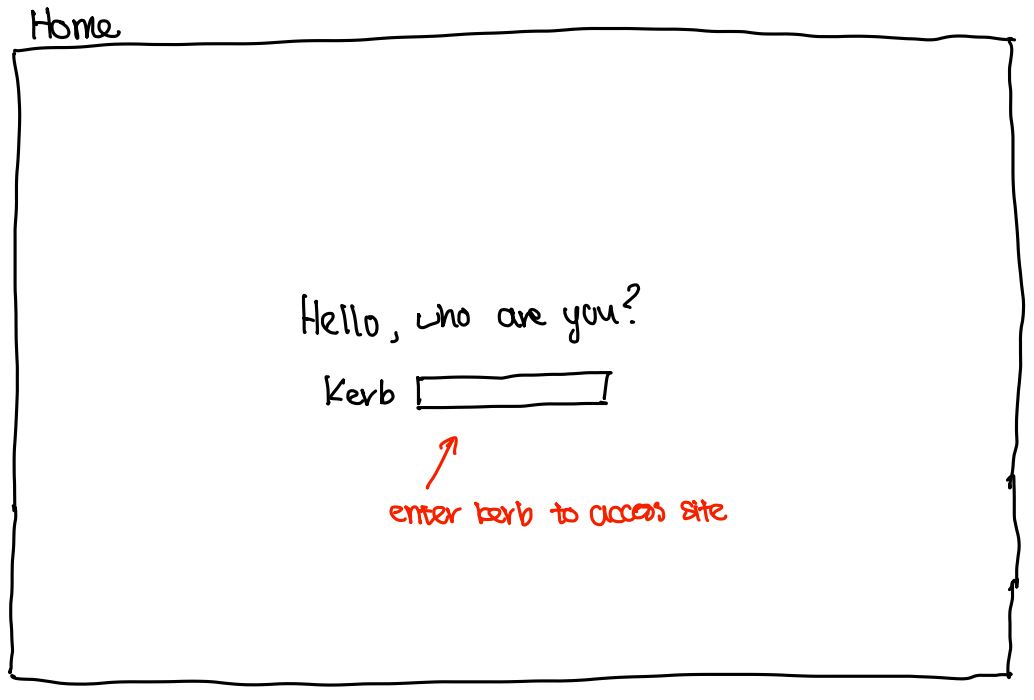 Home
Hello, who are you?
Kerb
enter kerb to access site